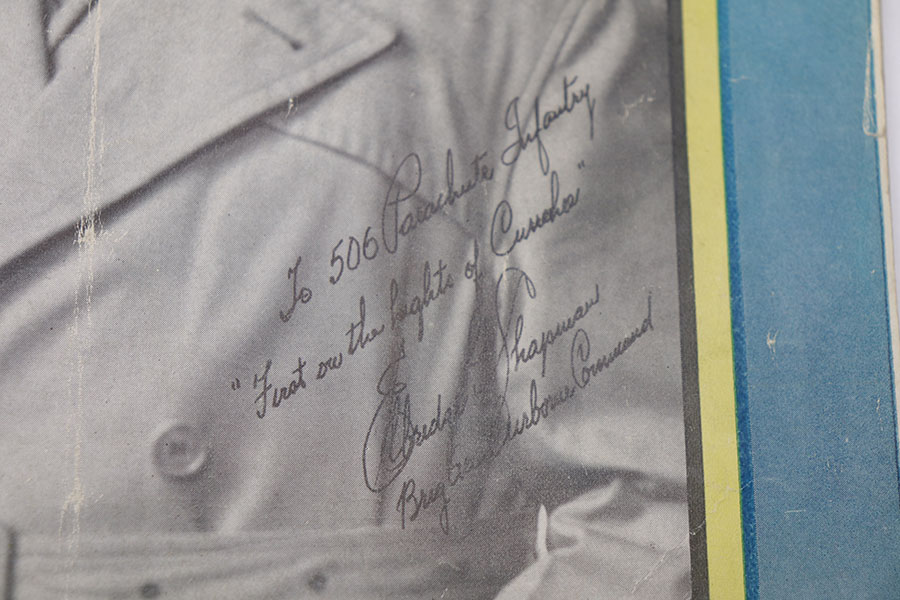 To 506 Parachute Infantry
"First on the hights of Currahee"
Elbridge G Chapman
Brig Gen Airborne Command